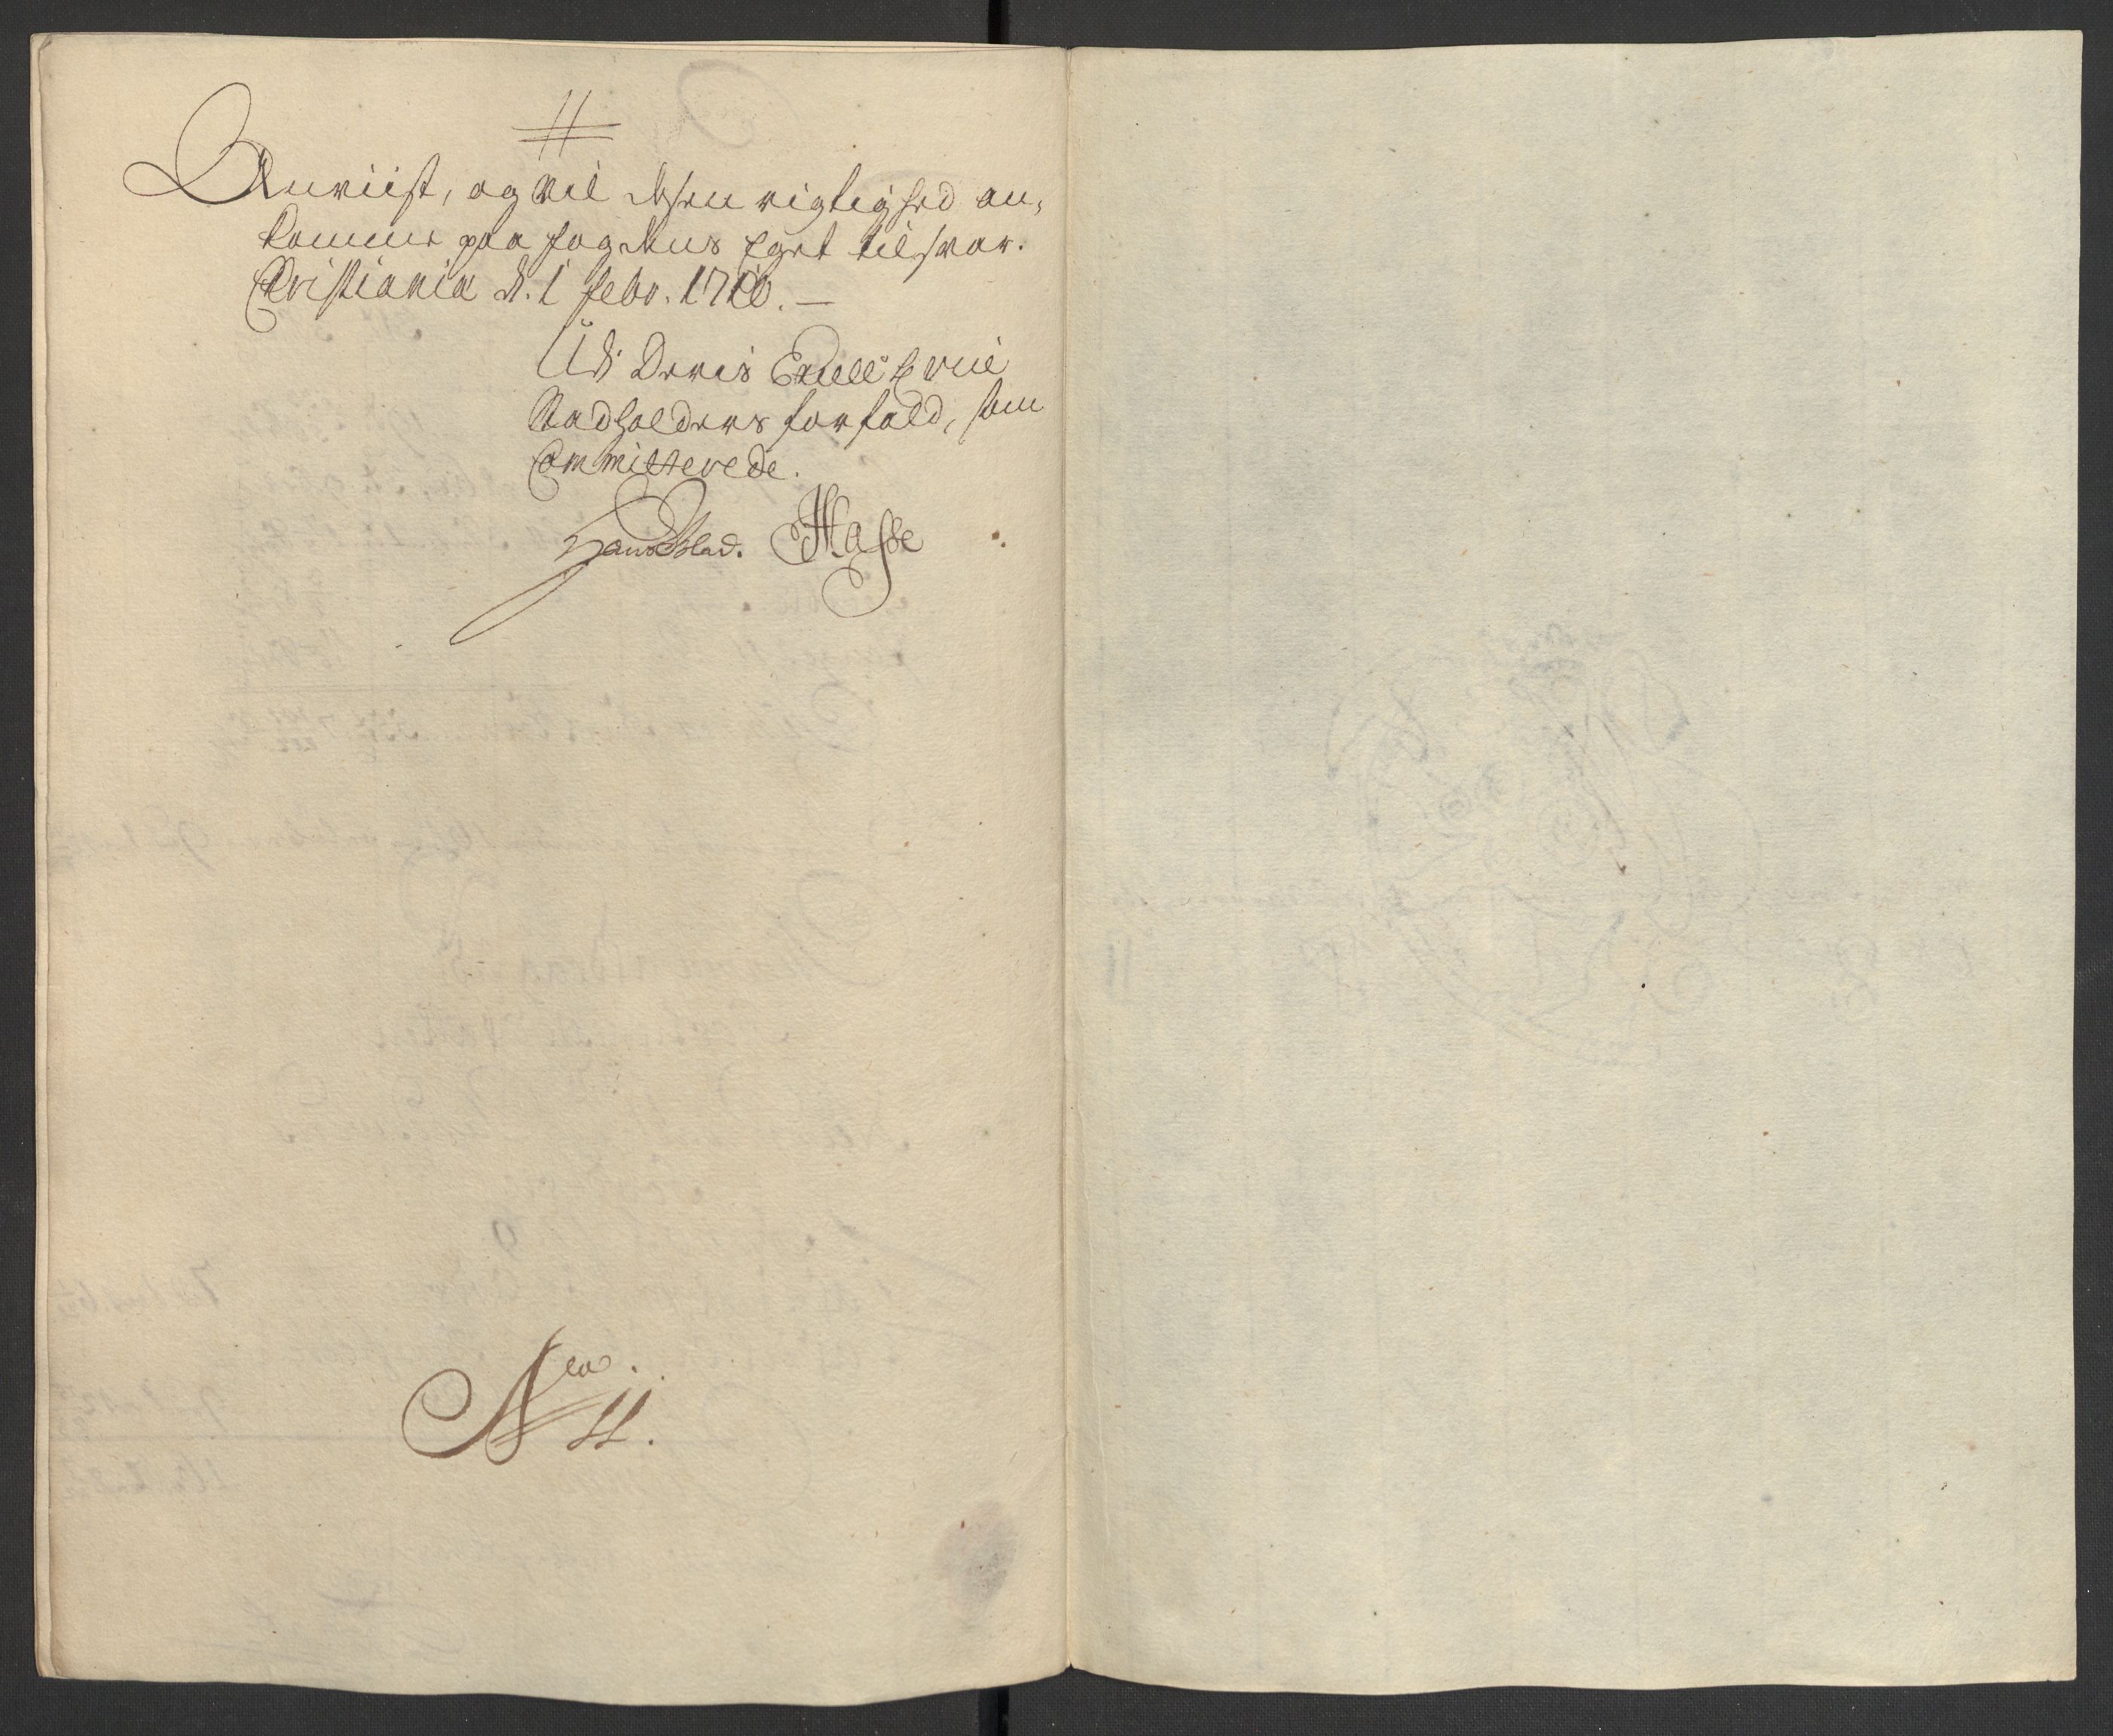 11
Anviist, og vil dessen rigtighed an,
komme paa fogdens Eget tilsvar.
Christiania d. 1 febr. 1710. —
Udi Deris Excell: H vice
Stadholders forfald, som
Committerede.
Hans Blad. Hasse
No. 11.